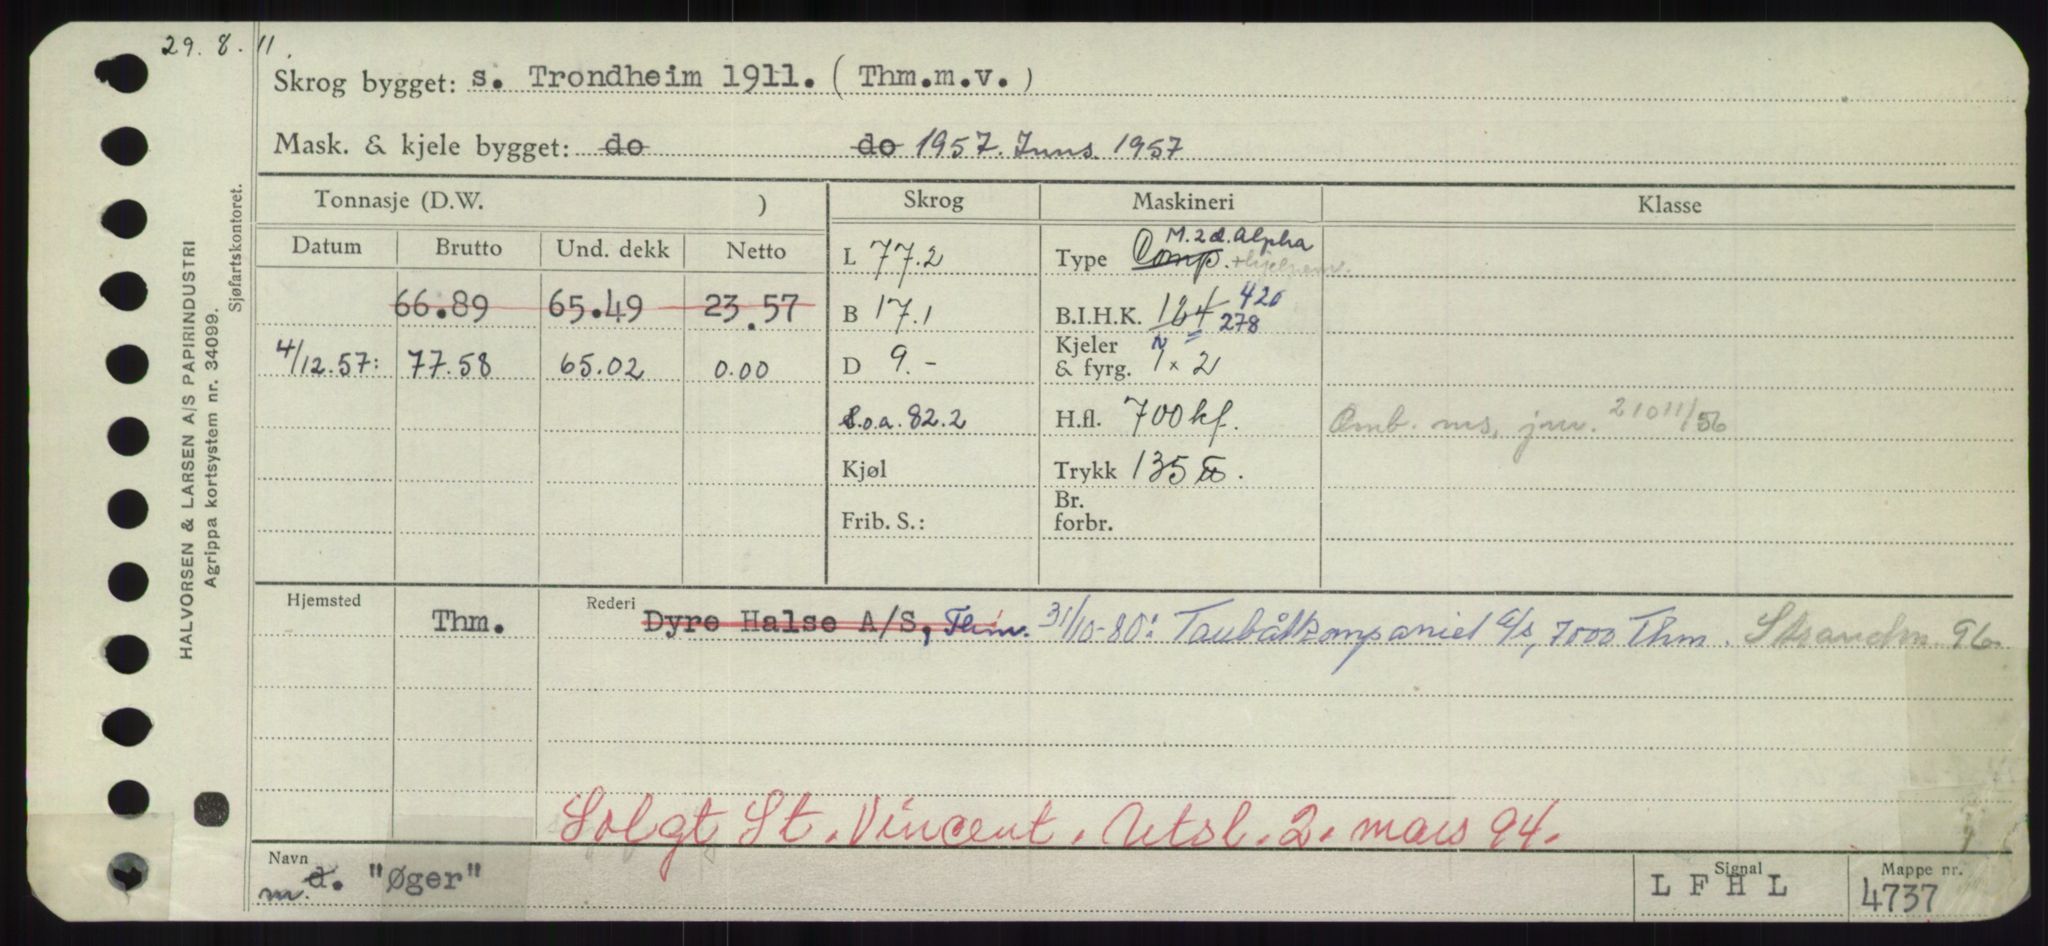 29. 8. 11.
Skrog bygget: s. Trondheim 1911. (Thm.m.v.)
Mask. & kjele bygget: do do 1957. Inns. 1957
Tonnasje (D.W. ) Skrog Maskineri Klasse
Datum Brutto Und. dekk Netto
L 77.2 Type Comp. M. 2 d. Alpha
66.89 65.49 23.57
B 17.1 B.I.H.K. 184 420 278
4/12.57: 77.58 65.02 0.00
D 9.- Kjeler & fyrg. 1 x 2
L.o.a. 82.2 H.fl. 700 kf. Omb. ms, jnv. 21011/56
Kjøl Trykk 135
Frib. S.: Br. forbr.
Hjemsted Thm. Rederi Dyre Halse A/S, 31/10-80: Taubåtkompaniet A/S, 7000 Thm.
Solgt St. Vincent. Utsl. 2. mars 94.
Navn m. d. "Øger" Signal L F H L Mappe nr. 4737
HALVORSEN & LARSEN A/S PAPIRINDUSTRI
Agrippa kortsystem nr. 34099.
Sjøfartskontoret.